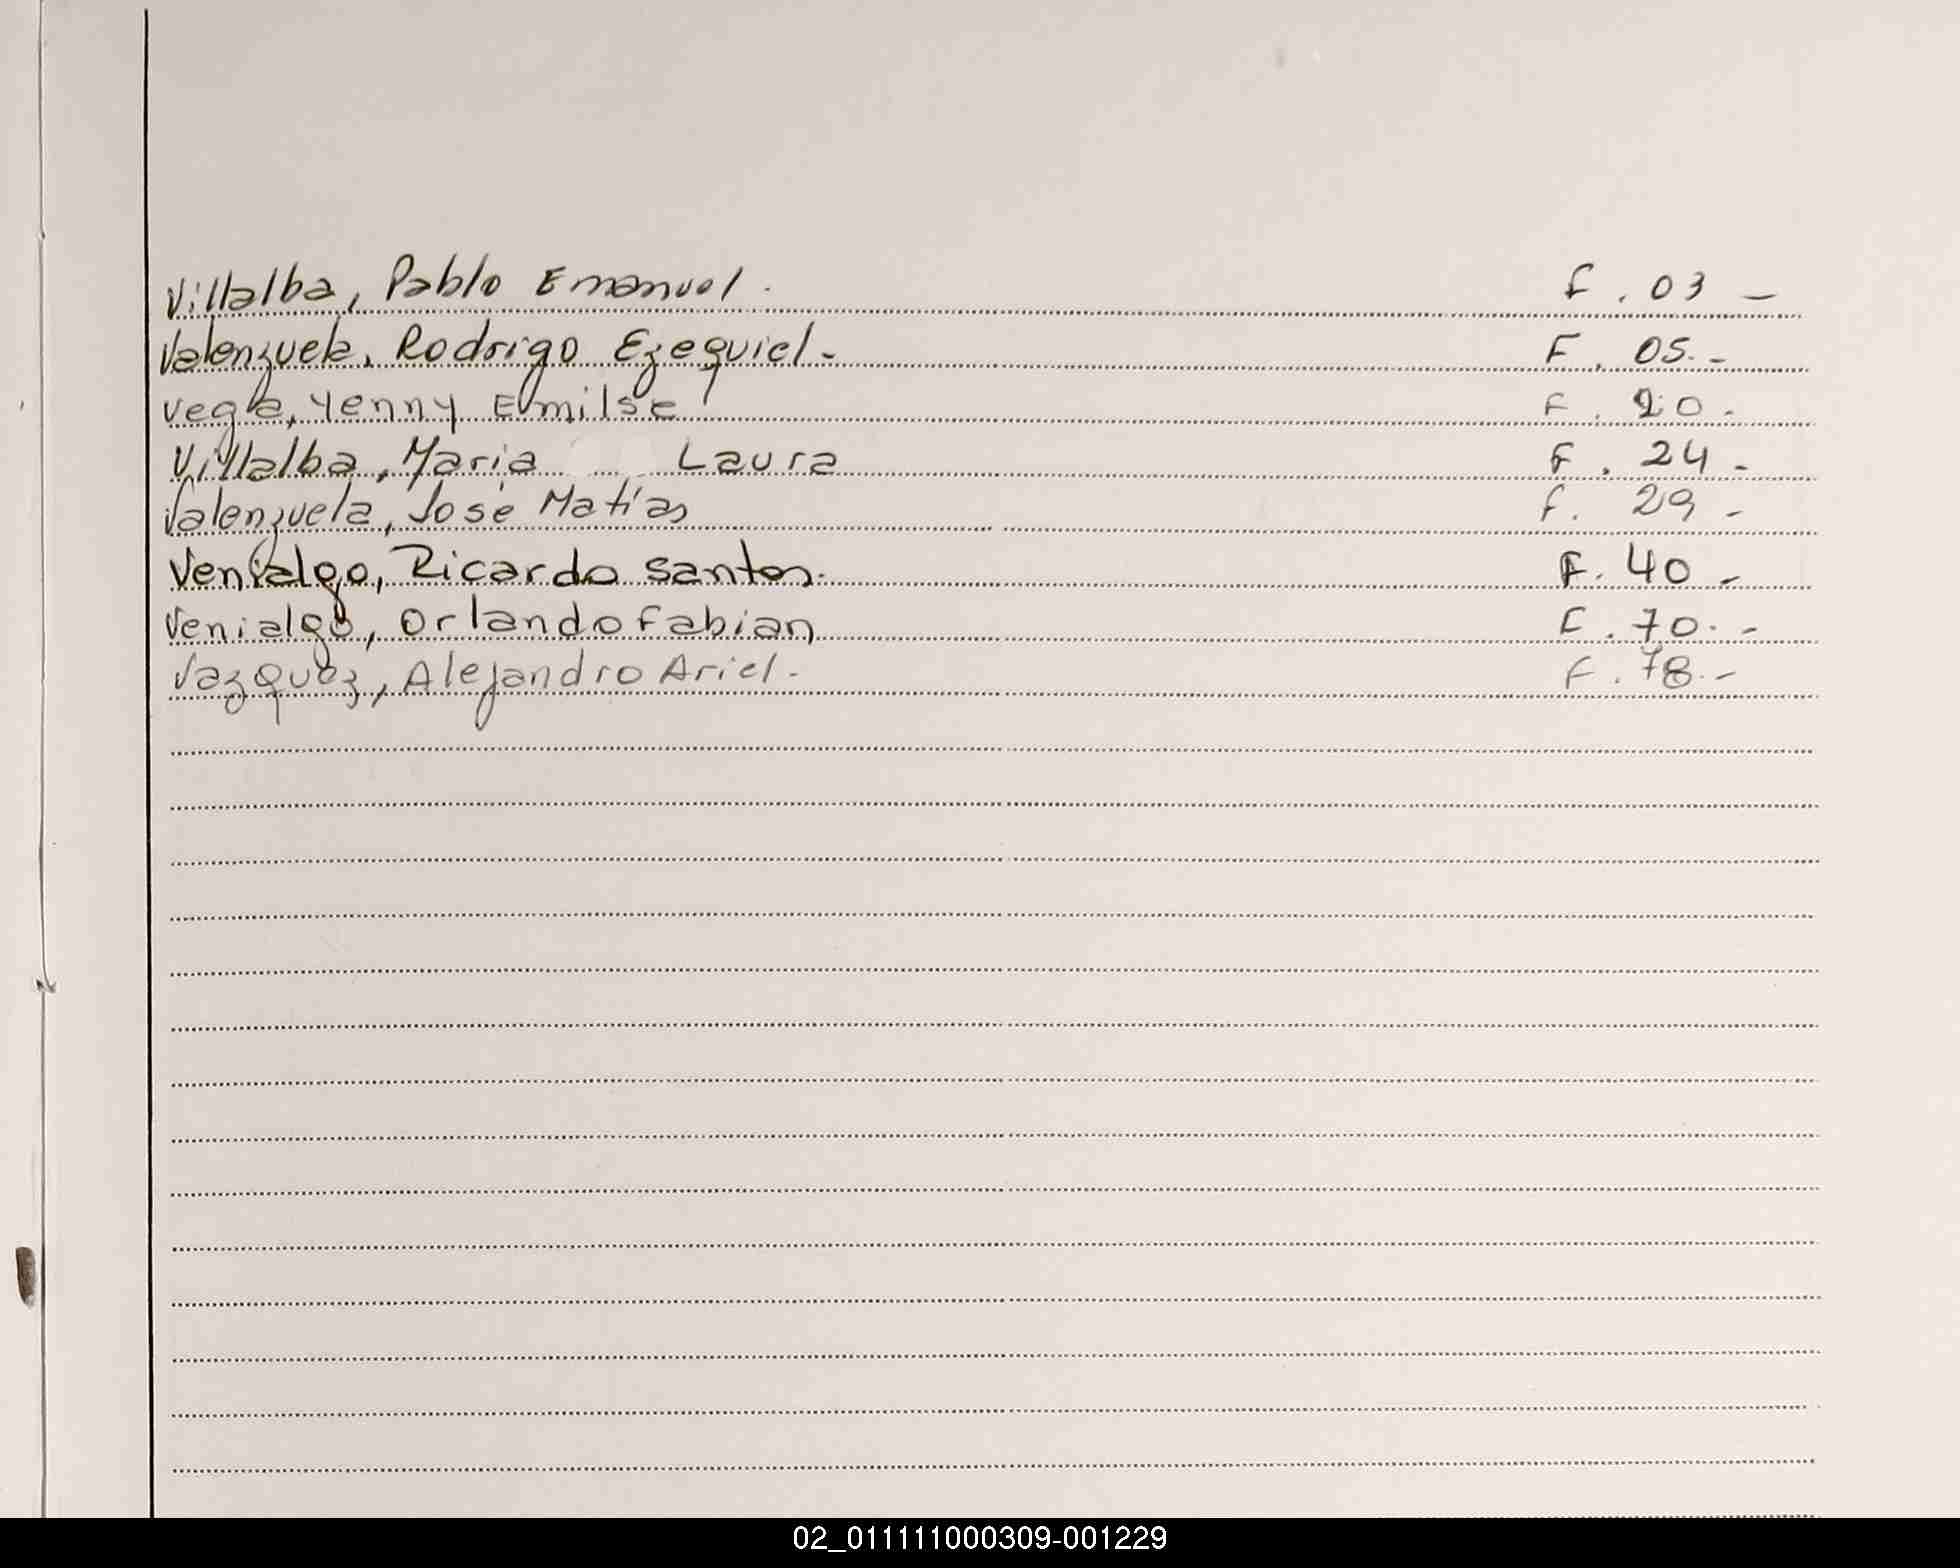 Villalba, Pablo Emanuel. F. 03 -
Valenzuela, Rodrigo Ezequiel.- F. 05.-
Vega, Yenny Emilse F. 20.-
Villalba, Maria Laura F. 24.-
Valenzuela, José Matías F. 29.-
Venialgo, Ricardo Santos. F. 40.-
Venialgo, Orlando Fabian F. 70.-
Vazquez, Alejandro Ariel.- F. 78.-
02_011111000309-001229